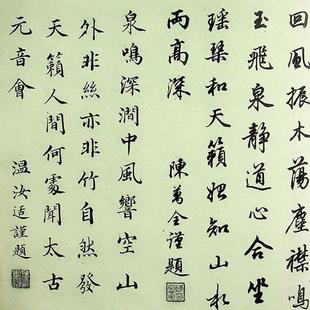 回風振木蕩塵襟鳴
玉飛泉靜道心合坐
瑤琴和天籟始知山水
兩高深
陳萬全謹題
泉鳴深澗中風響空山
外非絲亦非竹自然發
天籟人間何處聞太古
元音會
温汝适謹題